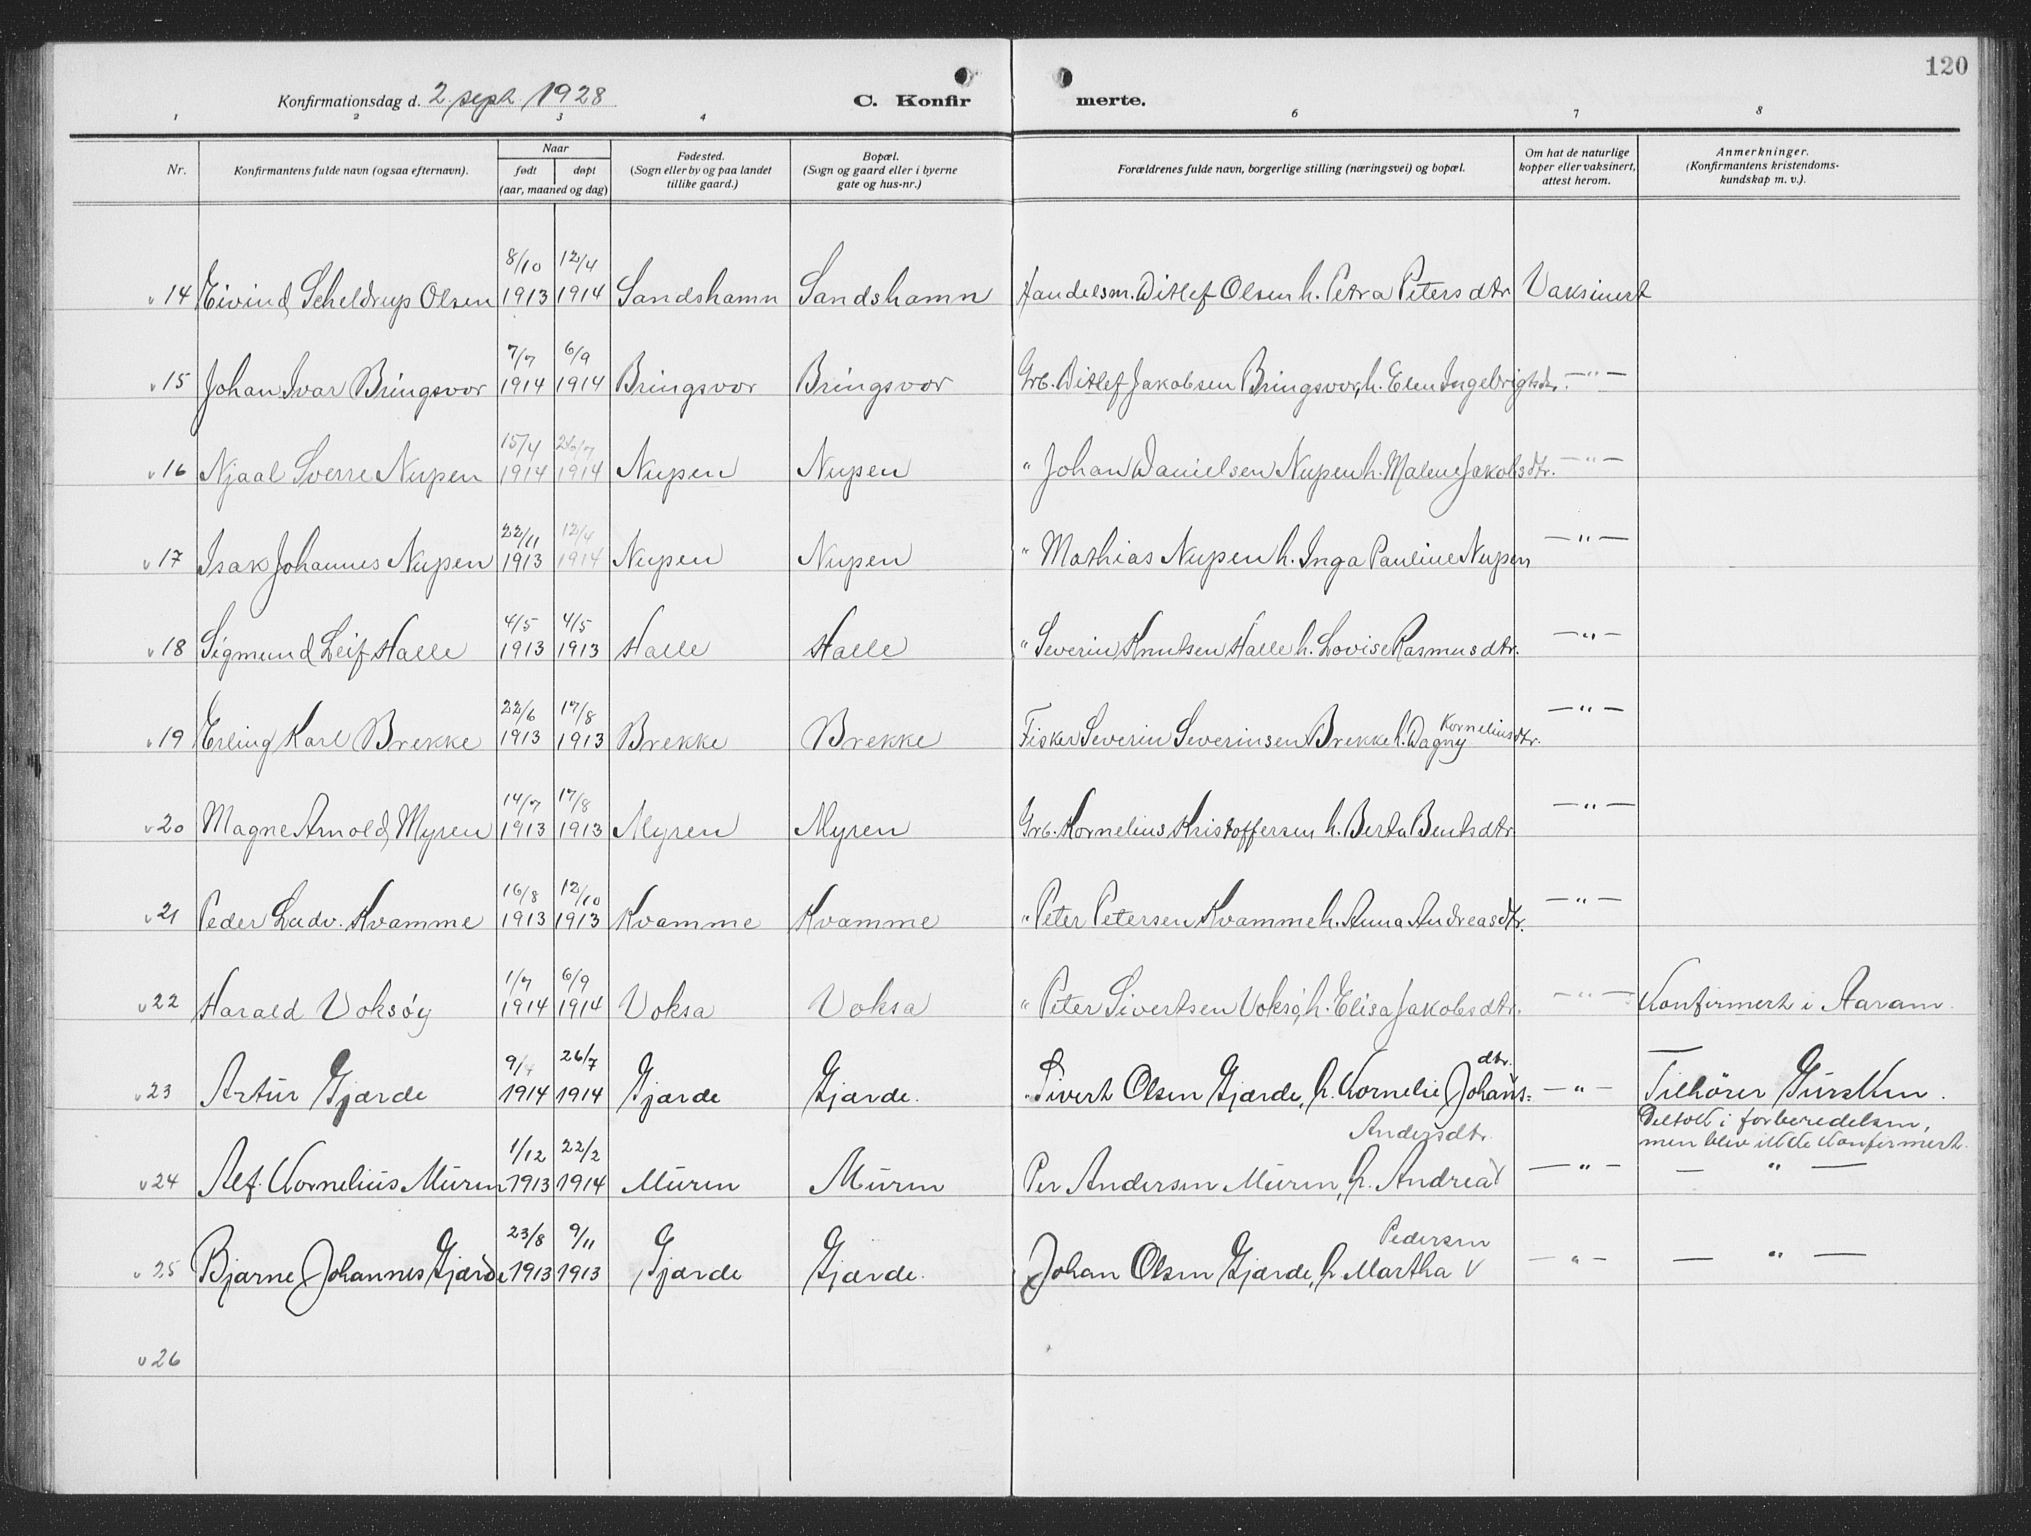 120
Konfirmationsdag d. 2 sept 1928 C. Konfir merte.
1 2 3 4 6 7 8
Nr. Konfirmantens fulde navn (ogsaa efternavn). Naar født døpt (aar, maaned og dag) Fødested. (Sogn eller by og paa landet tillike gaard.) Bopæl. (Sogn og gaard eller i byerne gate og hus-nr.) Forældrenes fulde navn, borgerlige stilling (næringsvei) og bopæl. Om hat de naturlige kopper eller vaksinert, attest herom. Anmerkninger. (Konfirmantens kristendoms-kundskap m. v.).
8/10 12/4
v 14 Eivind Scheldrup Olsen 1913 1914 Sandshamn Sandshamn Handelsm. Ditlef Olsen h. Petra Petersdtr Vaksinert
7/7 6/9
v 15 Johan Ivar Bringsvor 1914 1914 Bringsvor Bringsvor Grb. Ditlef Jakobsen Bringsvor, h. Elen Ingebrigtsdtr. — " —
15/4 26/7
v 16 Njaal Sverre Nupen 1914 1914 Nupen Nupen " Johan Danielsen Nupen h. Malene Jakobsdtr. — " —
22/11 12/4
v 17 Isak Johannes Nupen 1913 1914 Nupen Nupen " Mathias Nupen h. Inga Pauline Nupen — " —
4/5 4/5
v 18 Sigmund Leif Halle 1913 1913 Halle Halle " Severin Knutsen Halle h. Lovise Rasmusdtr. — " —
22/6 17/8
v 19 Erling Karl Brekke 1913 1913 Brekke Brekke Fisker Severin Severinsen Brekke h. Dagny Korneliusdtr. — " —
14/7 17/8
v 20 Magne Arnold Myren 1913 1913 Myren Myren Grb. Kornelius Kristoffersen h. Berta Bentsdtr — " —
16/8 12/10
v 21 Peder Ludv. Kvamme 1913 1913 Kvamme Kvamme " Peter Petersen Kvamme h. Anna Andreasdtr. — " —
1/7 6/9
v 22 Harald Voksøy 1914 1914 Voksa Voksa " Peter Sivertsen Voksø, h. Elisa Jakobsdtr. — " — Konfirmert i Aaram.
9/4 26/7 dtr.
v 23 Artur Gjærde 1914 1914 Gjærde Gjærde. " Sivert Olsen Gjærde, h. Kornelie Johans= — " — Tilhører Gursken.
Deltok i forberedelsen,
1/12 22/2 Andersdtr. men blev ikke konfirmert.
v 24 Alf. Kornelius Muren 1913 1914 Muren Muren Per Andersen Muren, h. Andrea v — " — — " —
23/8 9/11 Pedersen
v 25 Bjarne Johannes Gjærde 1913 1913 Gjærde Gjærde. Johan Olsen Gjærde, h. Martha v — " — — " —
v 26